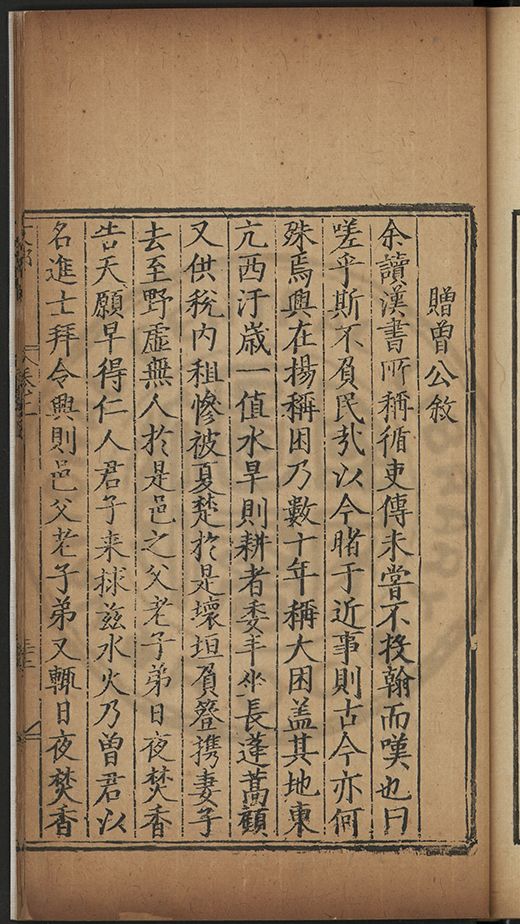 贈曾公敘
余讀漢書所稱循吏傳未嘗不投翰而嘆也曰
嗟乎斯不負民哉以今睹于近事則古今亦何
殊焉興在揚稱困乃數十年稱大困盖其地東
亢西汙歲一值水旱則耕者委手坐長蓬蒿顧
又供稅內租慘被夏楚於是壞垣負簦携妻子
去至野虛無人於是邑之父老子弟日夜焚香
告天願早得仁人君子来捄兹水火乃曾君以
名進士拜令興則邑父老子弟又輒日夜焚香